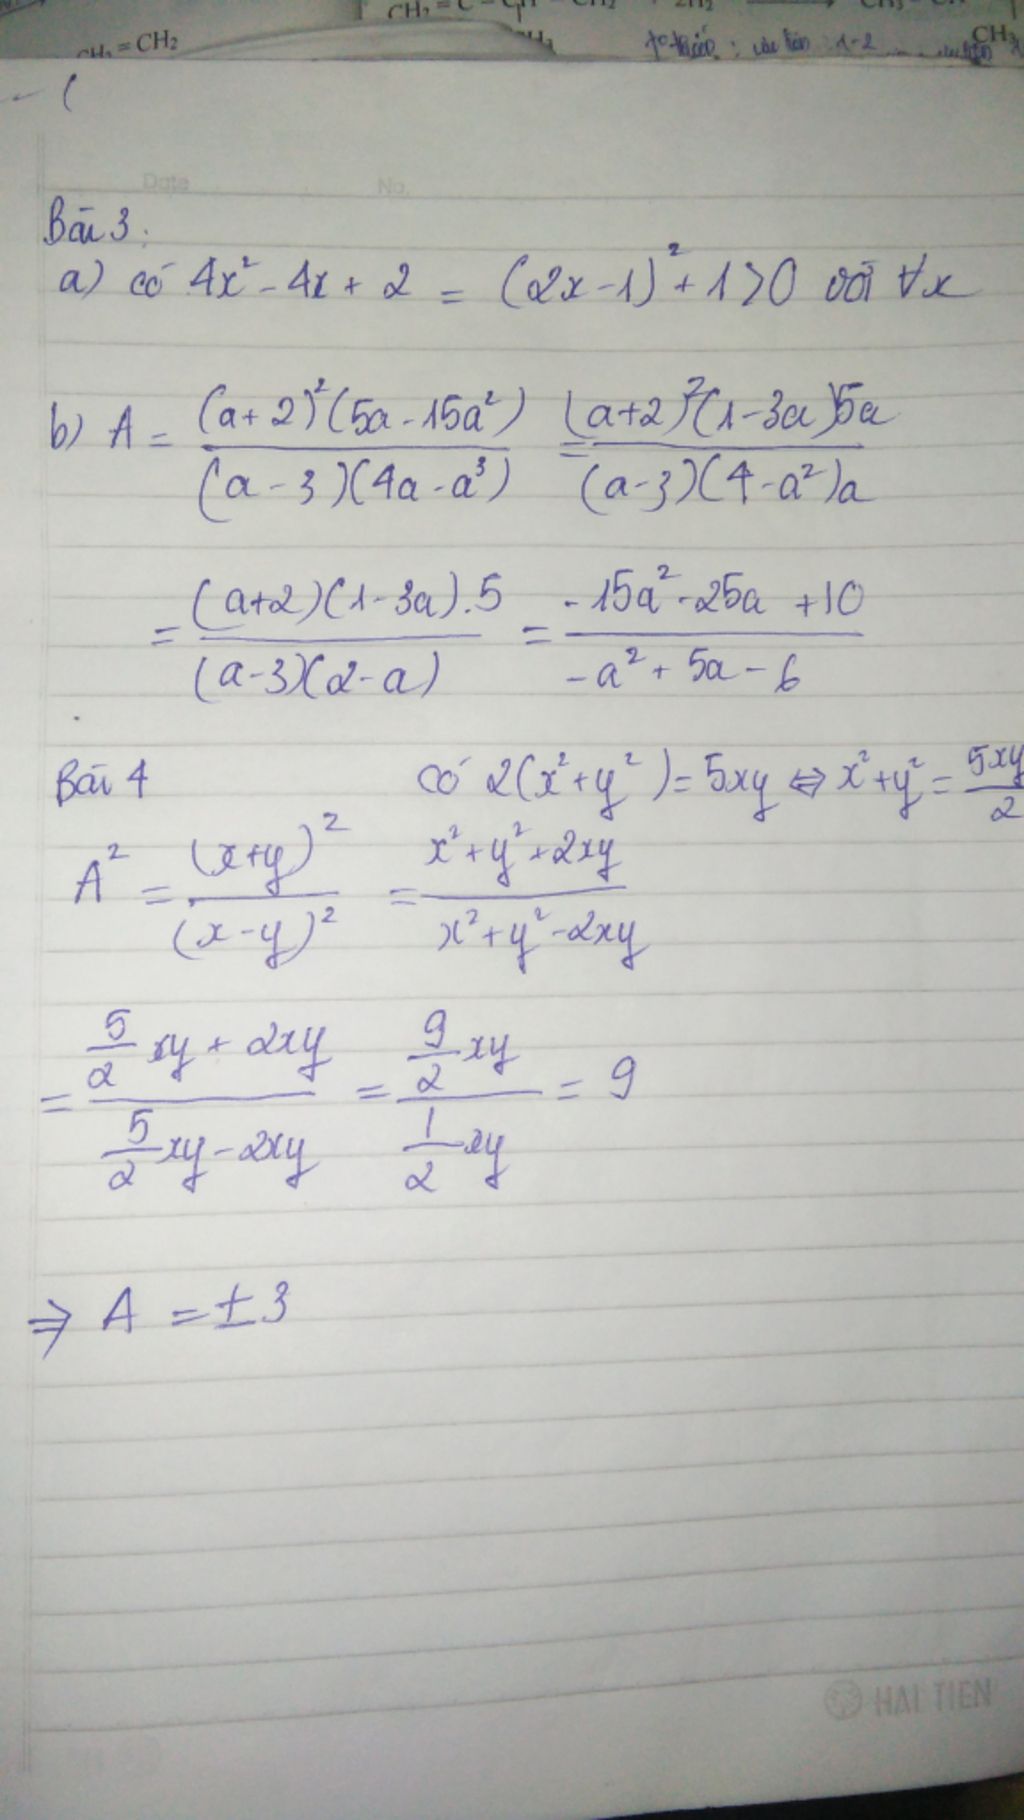 CH₂ = CH₂
CH₃
Date No.
Bài 3:
a) có 4x² - 4x + 2 = (2x-1)² + 1 > 0 với ∀x
b) A = (a+2)²(5a-15a²) / (a-3)(4a-a³) = (a+2)²(1-3a)5a / (a-3)(4-a²)a
= (a+2)(1-3a).5 / (a-3)(2-a) = -15a² - 25a + 10 / -a² + 5a - 6
Bài 4 Có 2(x²+y²) = 5xy ⇔ x²+y² = 5xy / 2
A² = (x+y)² / (x-y)² = x²+y²+2xy / x²+y²-2xy
= 5/2 xy + 2xy / 5/2 xy - 2xy = 9/2 xy / 1/2 xy = 9
⇒ A = ±3
HAI TIEN